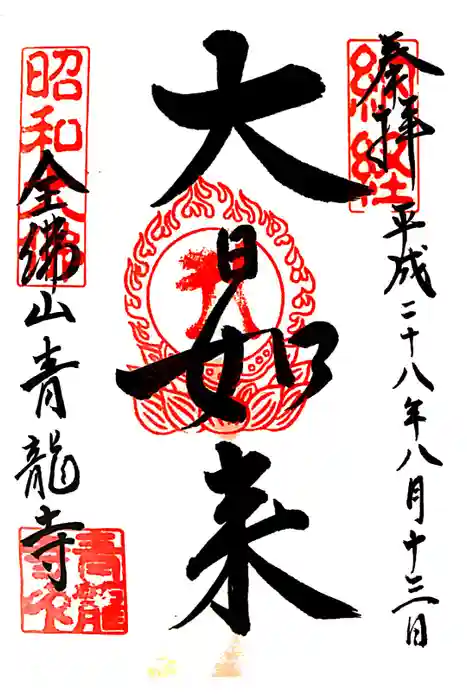 奉拝 平成二十八年八月十三日
大日如来
全佛山青龍寺
昭和
青龍